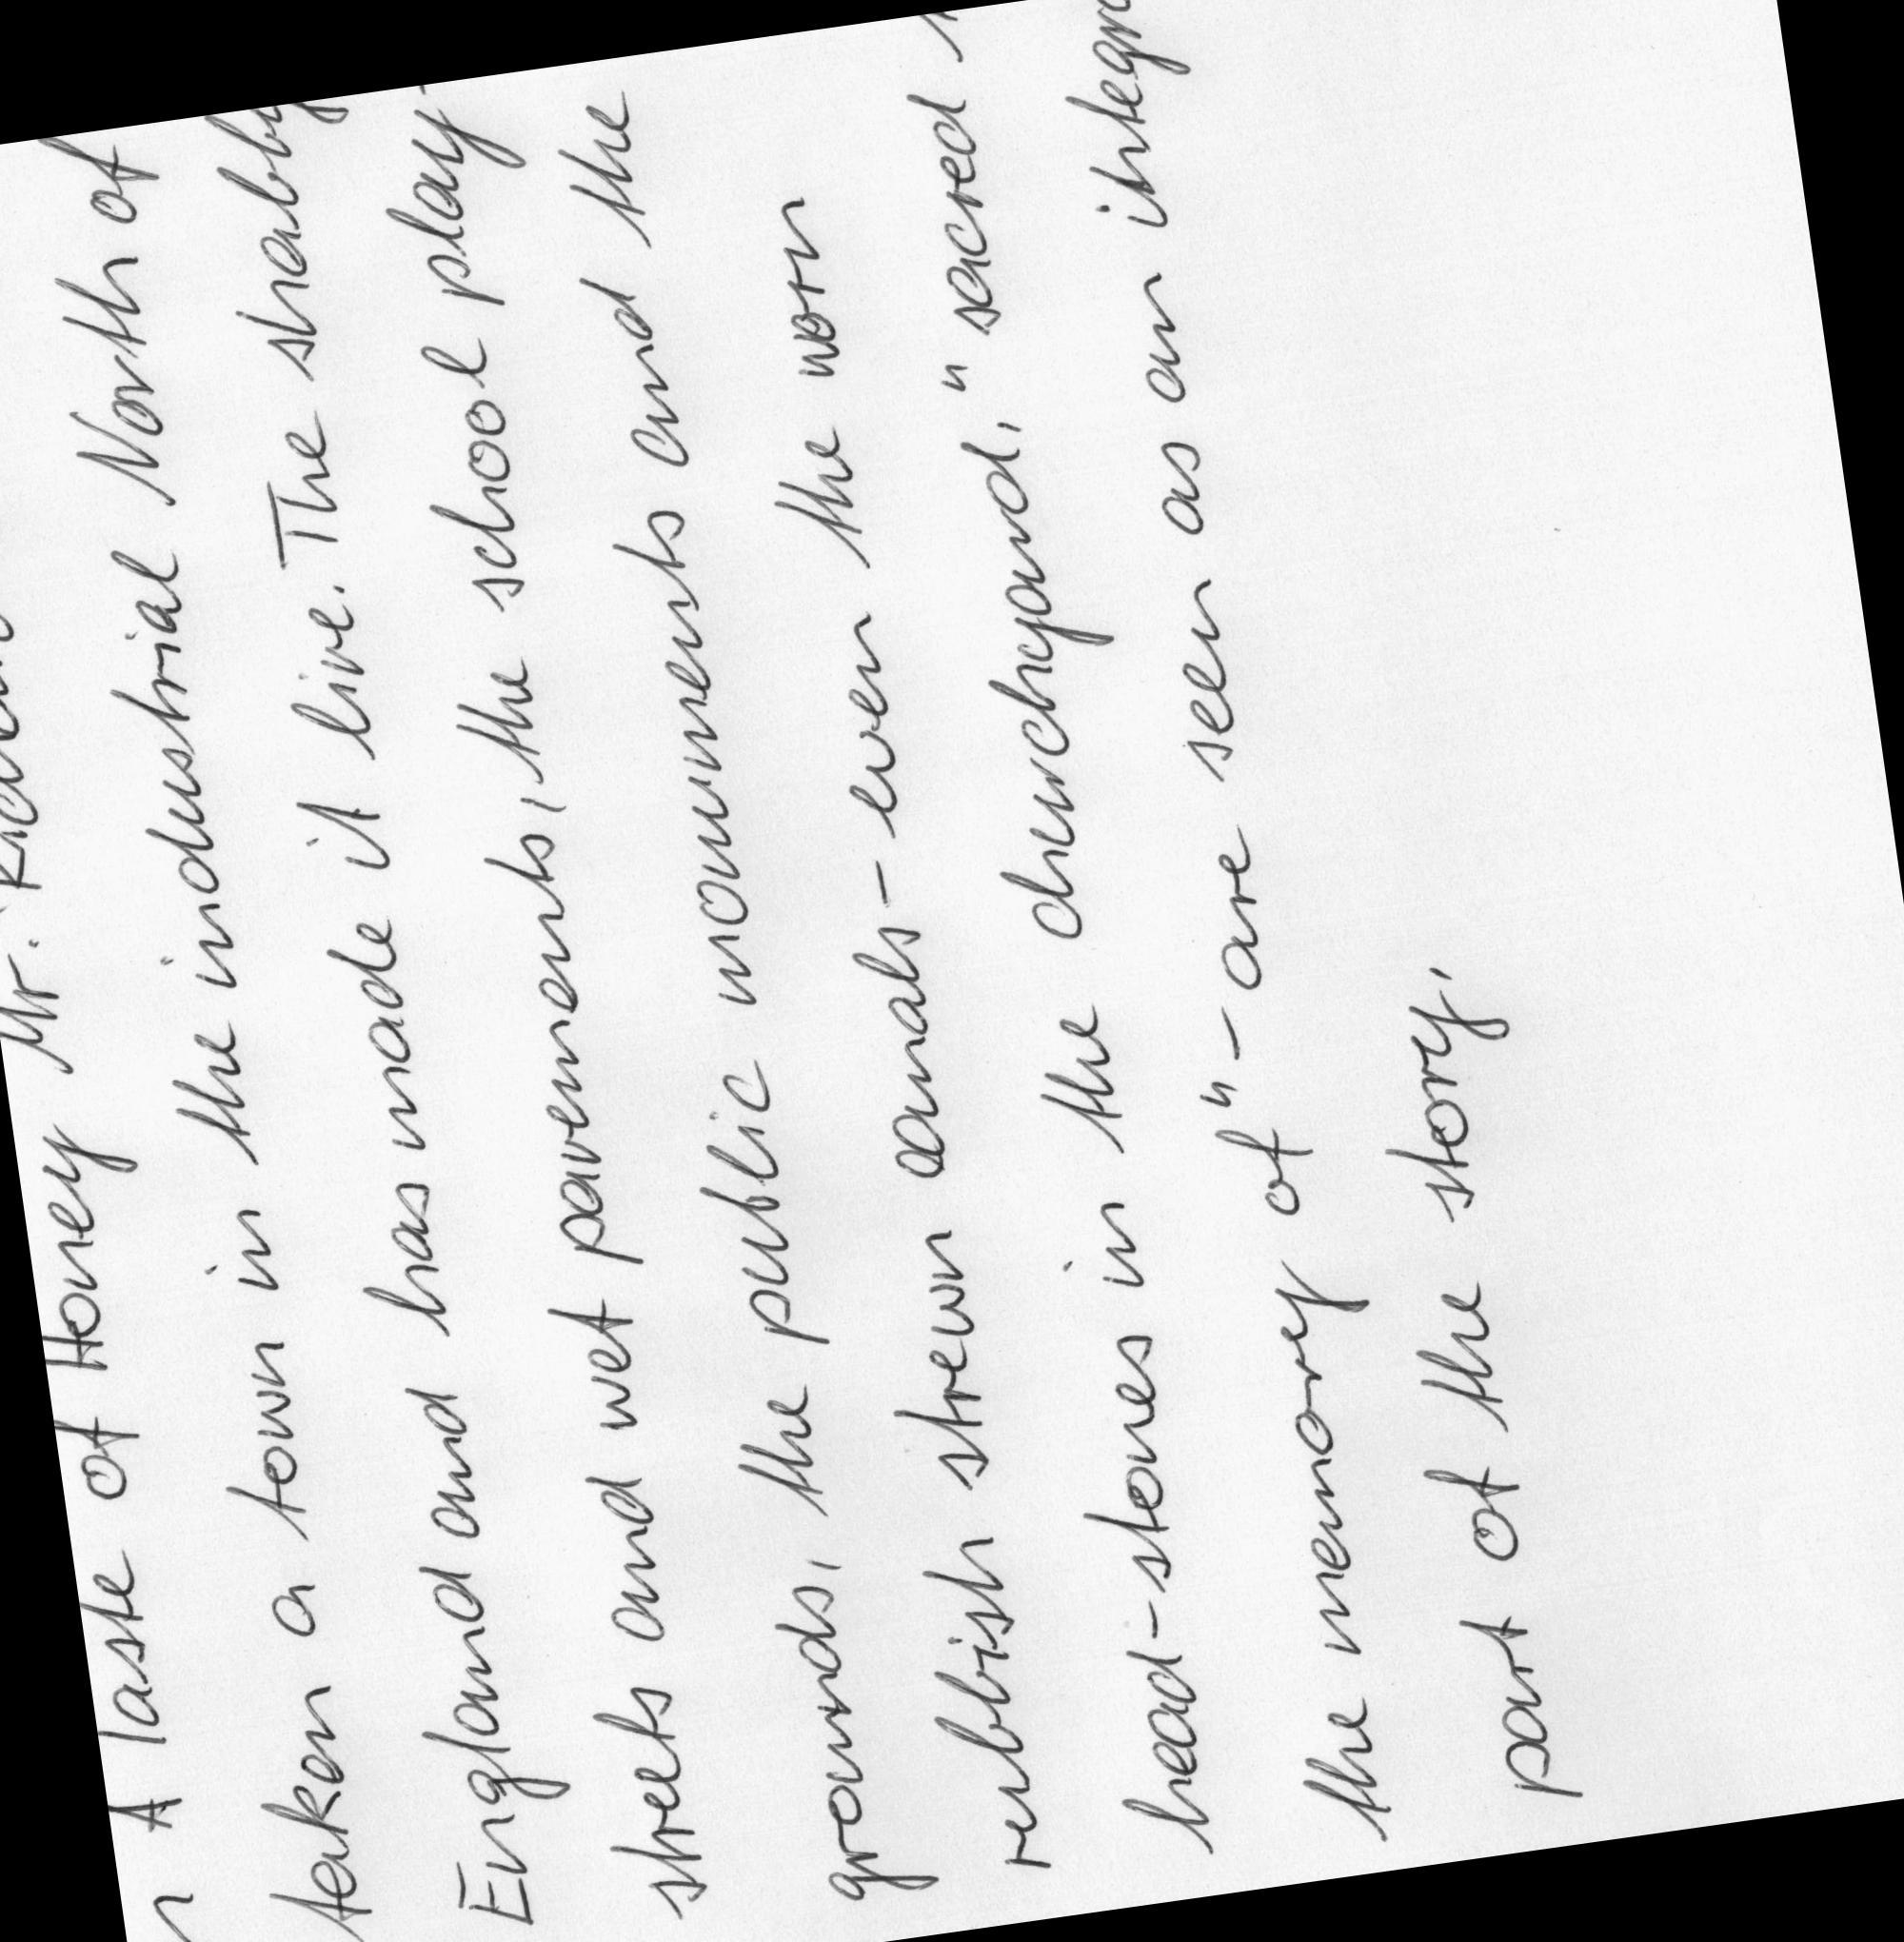 A Taste of Honey Mr.
taken a town in the industrial North of
England and has made it live. The shabby
streets and wet pavements, the school play-
grounds, the public monuments and the
rubbish strewn canals - even the worn
head-stones in the churchyard, "sacred
the memory of" - are seen as an
part of the story,